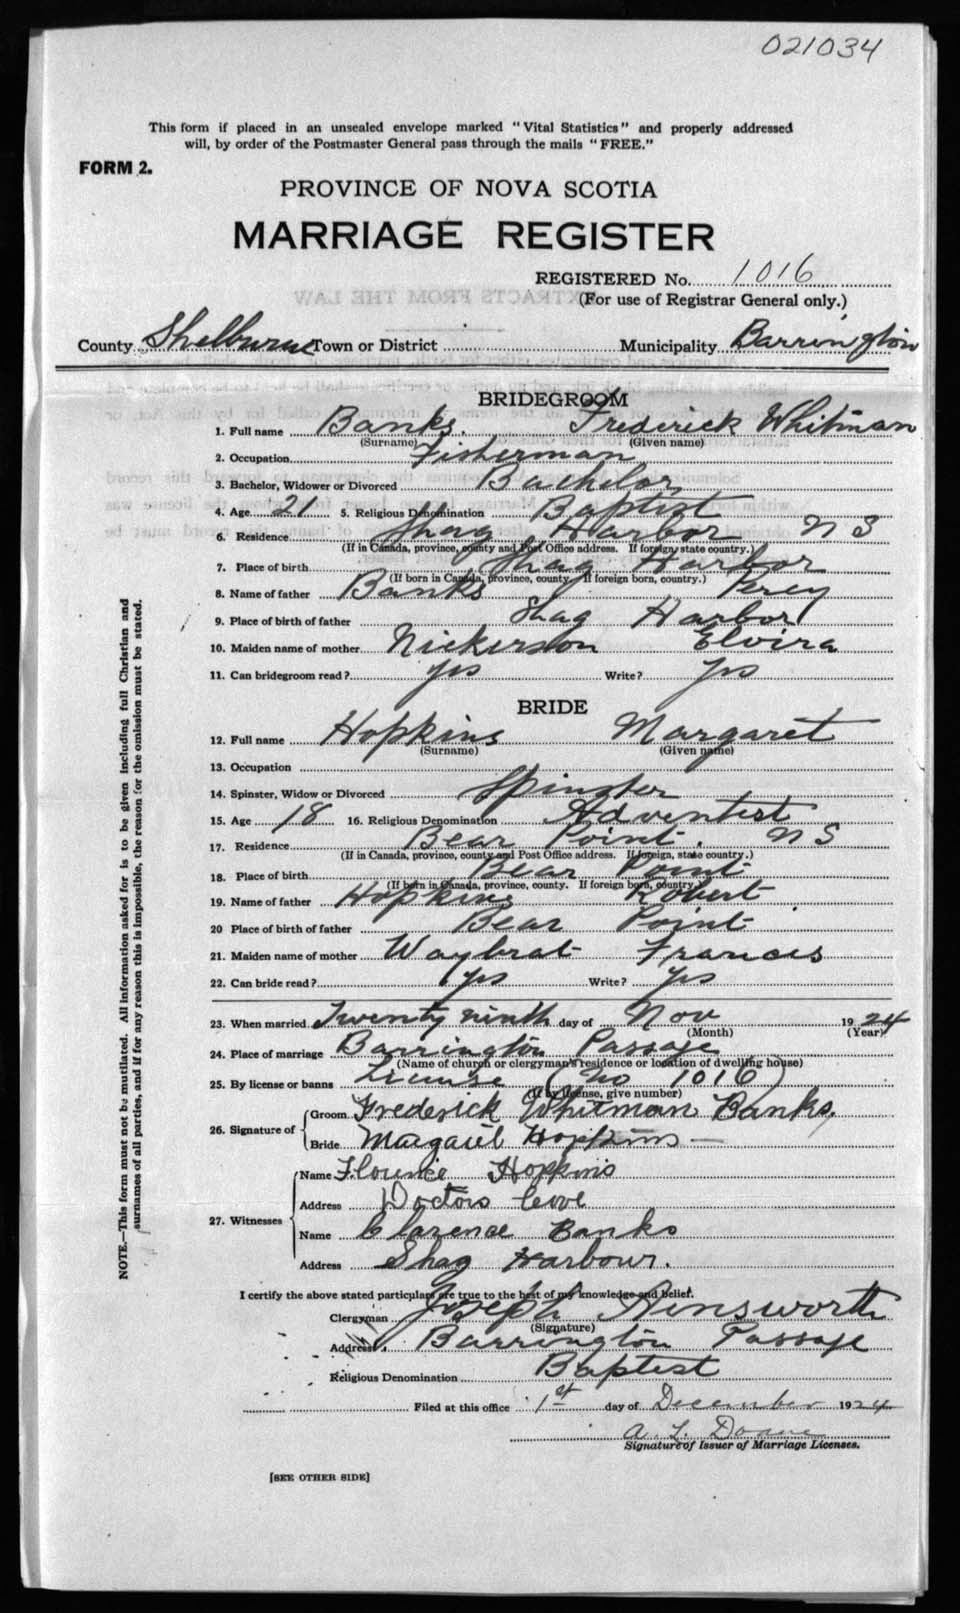 021034
This form if placed in an unsealed envelope marked "Vital Statistics" and properly addressed
will, by order of the Postmaster General pass through the mails "FREE."
FORM 2.
PROVINCE OF NOVA SCOTIA
MARRIAGE REGISTER
REGISTERED No. 1016
(For use of Registrar General only.)
County Shelburne Town or District Municipality Barrington
BRIDEGROOM
1. Full name Banks. Frederick Whitman
(Surname) (Given name)
2. Occupation Fisherman
3. Bachelor, Widower or Divorced Bachelor
4. Age 21 5. Religious Denomination Baptist
6. Residence Shag Harbor N S
(If in Canada, province, county and Post Office address. If foreign, state country.)
7. Place of birth Shag Harbor
(If born in Canada, province, county. If foreign born, country.)
8. Name of father Banks Percy
9. Place of birth of father Shag Harbor
10. Maiden name of mother Nickerson Elvira
11. Can bridegroom read? Yes Write? Yes
BRIDE
12. Full name Hopkins Margaret
(Surname) (Given name)
13. Occupation
14. Spinster, Widow or Divorced Spinster
15. Age 18 16. Religious Denomination Adventist
17. Residence Bear Point. N S
(If in Canada, province, county and Post Office address. If foreign, state country.)
18. Place of birth Bear Point
(If born in Canada, province, county. If foreign born, country.)
19. Name of father Hopkins Robert
20 Place of birth of father Bear Point
21. Maiden name of mother Waybrat Frances
22. Can bride read? Yes Write? Yes
23. When married Twenty ninth day of Nov 1924
(Month) (Year)
24. Place of marriage Barrington Passage
(Name of church or clergyman's residence or location of dwelling house)
25. By license or banns License (No 1016)
(If by license, give number)
26. Signature of Groom Frederick Whitman Banks
Bride Margaret Hopkins
27. Witnesses
Name Florence Hopkins
Address Doctors Cove
Name Clarence Banks
Address Shag Harbour.
I certify the above stated particulars are true to the best of my knowledge and belief.
Clergyman Joseph Ainsworth
(Signature)
Address Barrington Passage
Religious Denomination Baptist
Filed at this office 1st day of December 1924
A. L. Doane
Signature of Issuer of Marriage Licenses.
[SEE OTHER SIDE]
NOTE.—This form must not be mutilated. All information asked for is to be given including full Christian and
surnames of all parties, and if for any reason this is impossible, the reason for the omission must be stated.